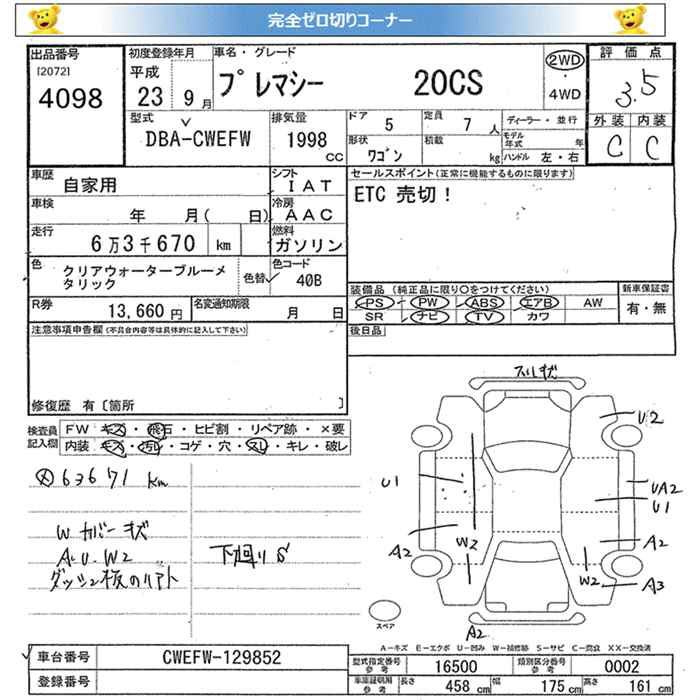 完全ゼロ切りコーナー
出品番号
[2072]
4098
初度登録年月
平成
23 9月
車名・グレード
プレマシー 20CS
2WD
・
4WD
評価点
3.5
外装 内装
C C
型式
DBA-CWEFW
排気量
1998
CC
ドア
5
定員
7 人
形状
ワゴン
積載
kg
ディーラー・並行
モデル年式 年
ハンドル 左・右
車歴
自家用
シフト
IAT
車検
年 月( 日)
冷房
AAC
走行
6万3千670 km
燃料
ガソリン
色
クリアウォーターブルーメタリック
色替
色コード
40B
R券
13,660円
名変通知期限
月 日
セールスポイント(正常に機能するものに限ります)
ETC 売切!
装備品 (純正品に限り○をつけてください)
PS PW ABS エアB AW
SR ナビ TV カワ
新車保証書
有・無
後日品
注意事項申告欄(不具合内容等は具体的に記入して下さい)
修復歴 有〔箇所 〕
検査員記入欄
FW キズ・飛石・ヒビ割・リペア跡・×要
内装 キズ・汚レ・コゲ・穴・スレ・キレ・破レ
63671 km
W カバーキズ
A.U.W2
ダッシュ板のリアト
下廻りS
スリキズ
U2
U1
UA2
U1
A2
W2
A2
W2
A3
A2
スペア
A-キズ E-エクボ U-凹み W-補修跡 S-サビ C-腐食 XX-交換済
車台番号
CWEFW-129852
登録番号
型式指定番号
参考
16500
類別区分番号
参考
0002
車庫証明用
参考
長さ
458 cm
幅
175 cm
高さ
161 cm